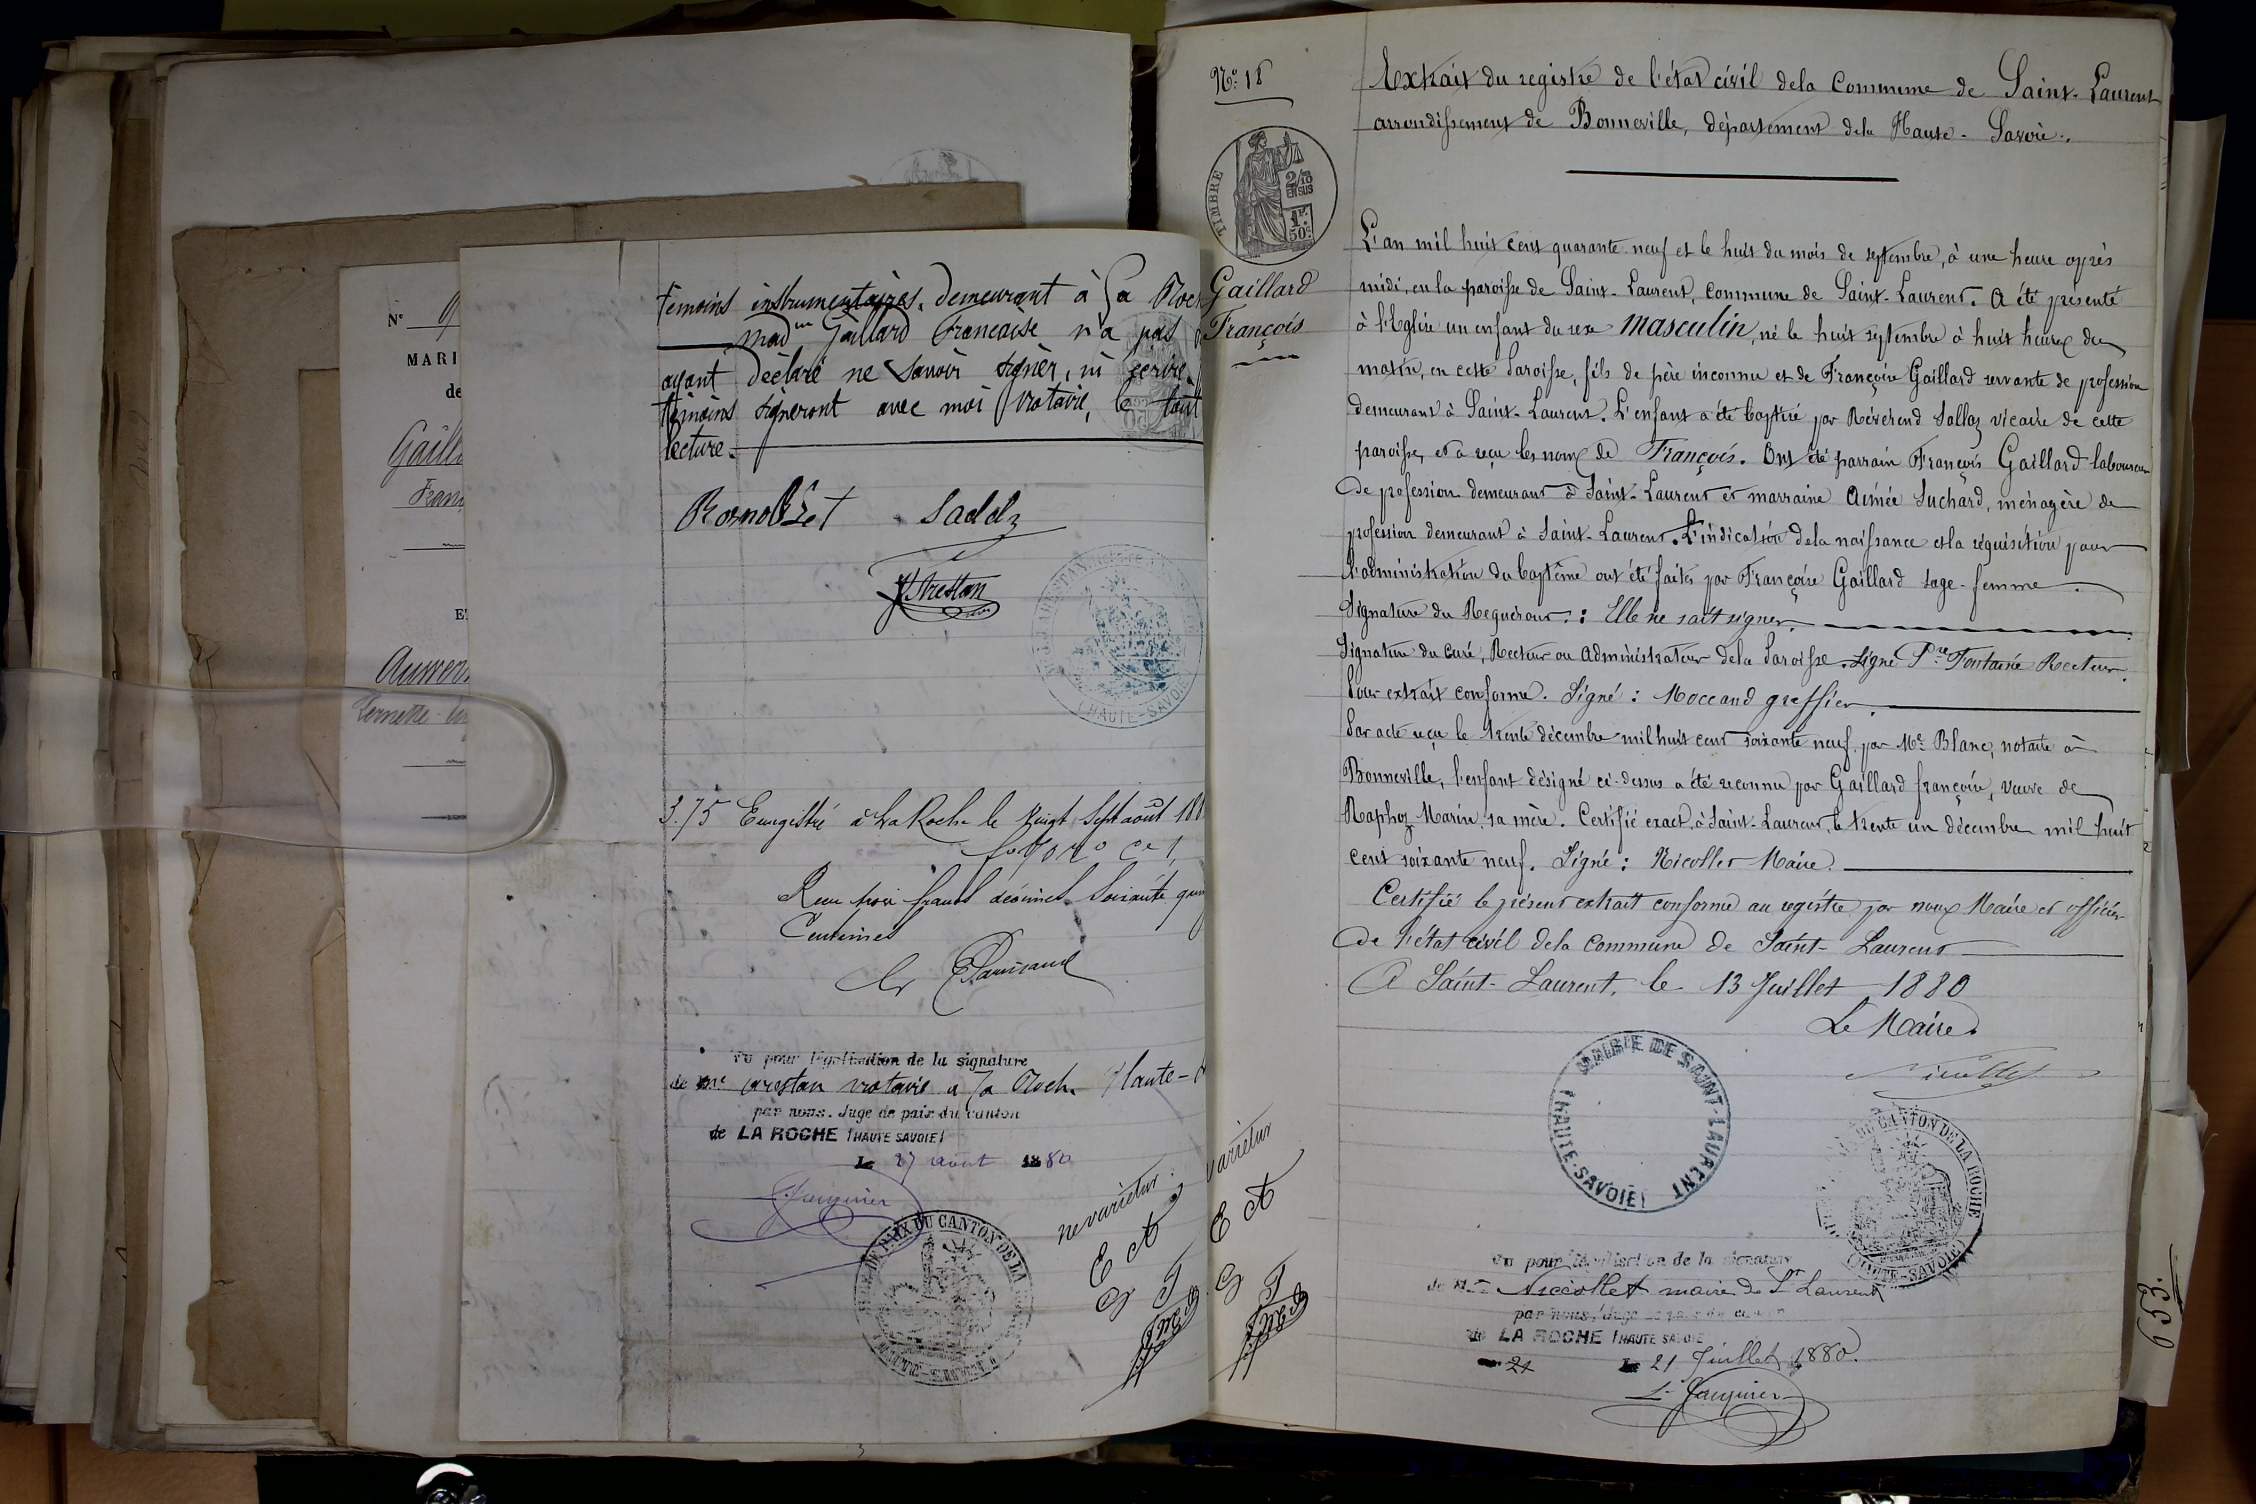 Nº
MARI
de
Gaill
Fran
E
témoins instrumentaires, demeurant à La Roch
Mad.me Gaillard Francoise n'a pas
ayant déclaré ne savoir signer, ni écrire,
témoins signeront avec moi notaire, le tout
lecture.
Saddz
Arestan
3.75 Enregistré à La Roche le vingt sept août 18
Reçu trois francs décimes Soixante
Centimes
Vu pour légalisation de la signature
de Me Arestan notaire a La Roche Haute-
par nous, Juge de paix du canton
de LA ROCHE (HAUTE SAVOIE)
Le 27 août 1880
Jacquier
DE PAIX DU CANTON DE LA
ne varietur :
E A
G T
Nº 18
TIMBRE
2/10
EN SUS
1F
50c
Gaillard
François
varietur
E A
G T
Extrait du registre de l'état civil dela Commune de Saint-Laurent
arrondissement de Bonneville, département dela Haute-Savoie.
L'an mil huit cent quarante neuf et le huit du mois de septembre, à une heure après
midi, en la paroisse de Saint-Laurent, commune de Saint-Laurent. A été présenté
à l'Eglise un enfant du sexe masculin, né le huit septembre à huit heures du
matin, en cette Paroisse, fils de père inconnu et de Françoise Gaillard servante de profession
demeurant à Saint-Laurent. L'enfant a été baptisé par Révérend Sallaz vicaire de cette
paroisse, et a reçu les noms de François. Ont été parrain François Gaillard laboureur
de profession demeurant à Saint-Laurent et marraine Aimée Suchard, ménagère de
profession demeurant à Saint-Laurent. L'indication dela naissance et la réquisition pour
l'administration du baptême ont été faites par Françoise Gaillard sage-femme.
Signature du Requérant : Elle ne sait signer.
Signature du curé, Recteur ou Administrateur dela Paroisse. Signé Fontaine Recteur.
Pour extrait conforme. Signé : Moccand greffier.
Par acte reçu le trente décembre mil huit cent soixante neuf, par Me Blanc, notaire à
Bonneville, l'enfant désigné ci-dessus a été reconnu par Gaillard françoise, veuve de
Naphoz Marin, sa mère. Certifié exact, à Saint-Laurent, le trente un décembre mil huit
cent soixante neuf. Signé : Nicollet Maire.
Certifié le présent extrait conforme au registre par nous Maire et officier
de l'état civil dela commune de Saint-Laurent
A Saint-Laurent, le 13 Juillet 1880
Le Maire.
Nicollet
MAIRIE DE SAINT-LAURENT
(HAUTE-SAVOIE)
DU CANTON DE LA ROCHE
(HAUTE-SAVOIE)
Vu pour légalisation de la signature
de Mr Niccollet maire de St Laurent
par nous, Juge de paix du canton
de LA ROCHE (HAUTE SAVOIE
21 Le 21 Juillet 1880.
Jacquier
659.